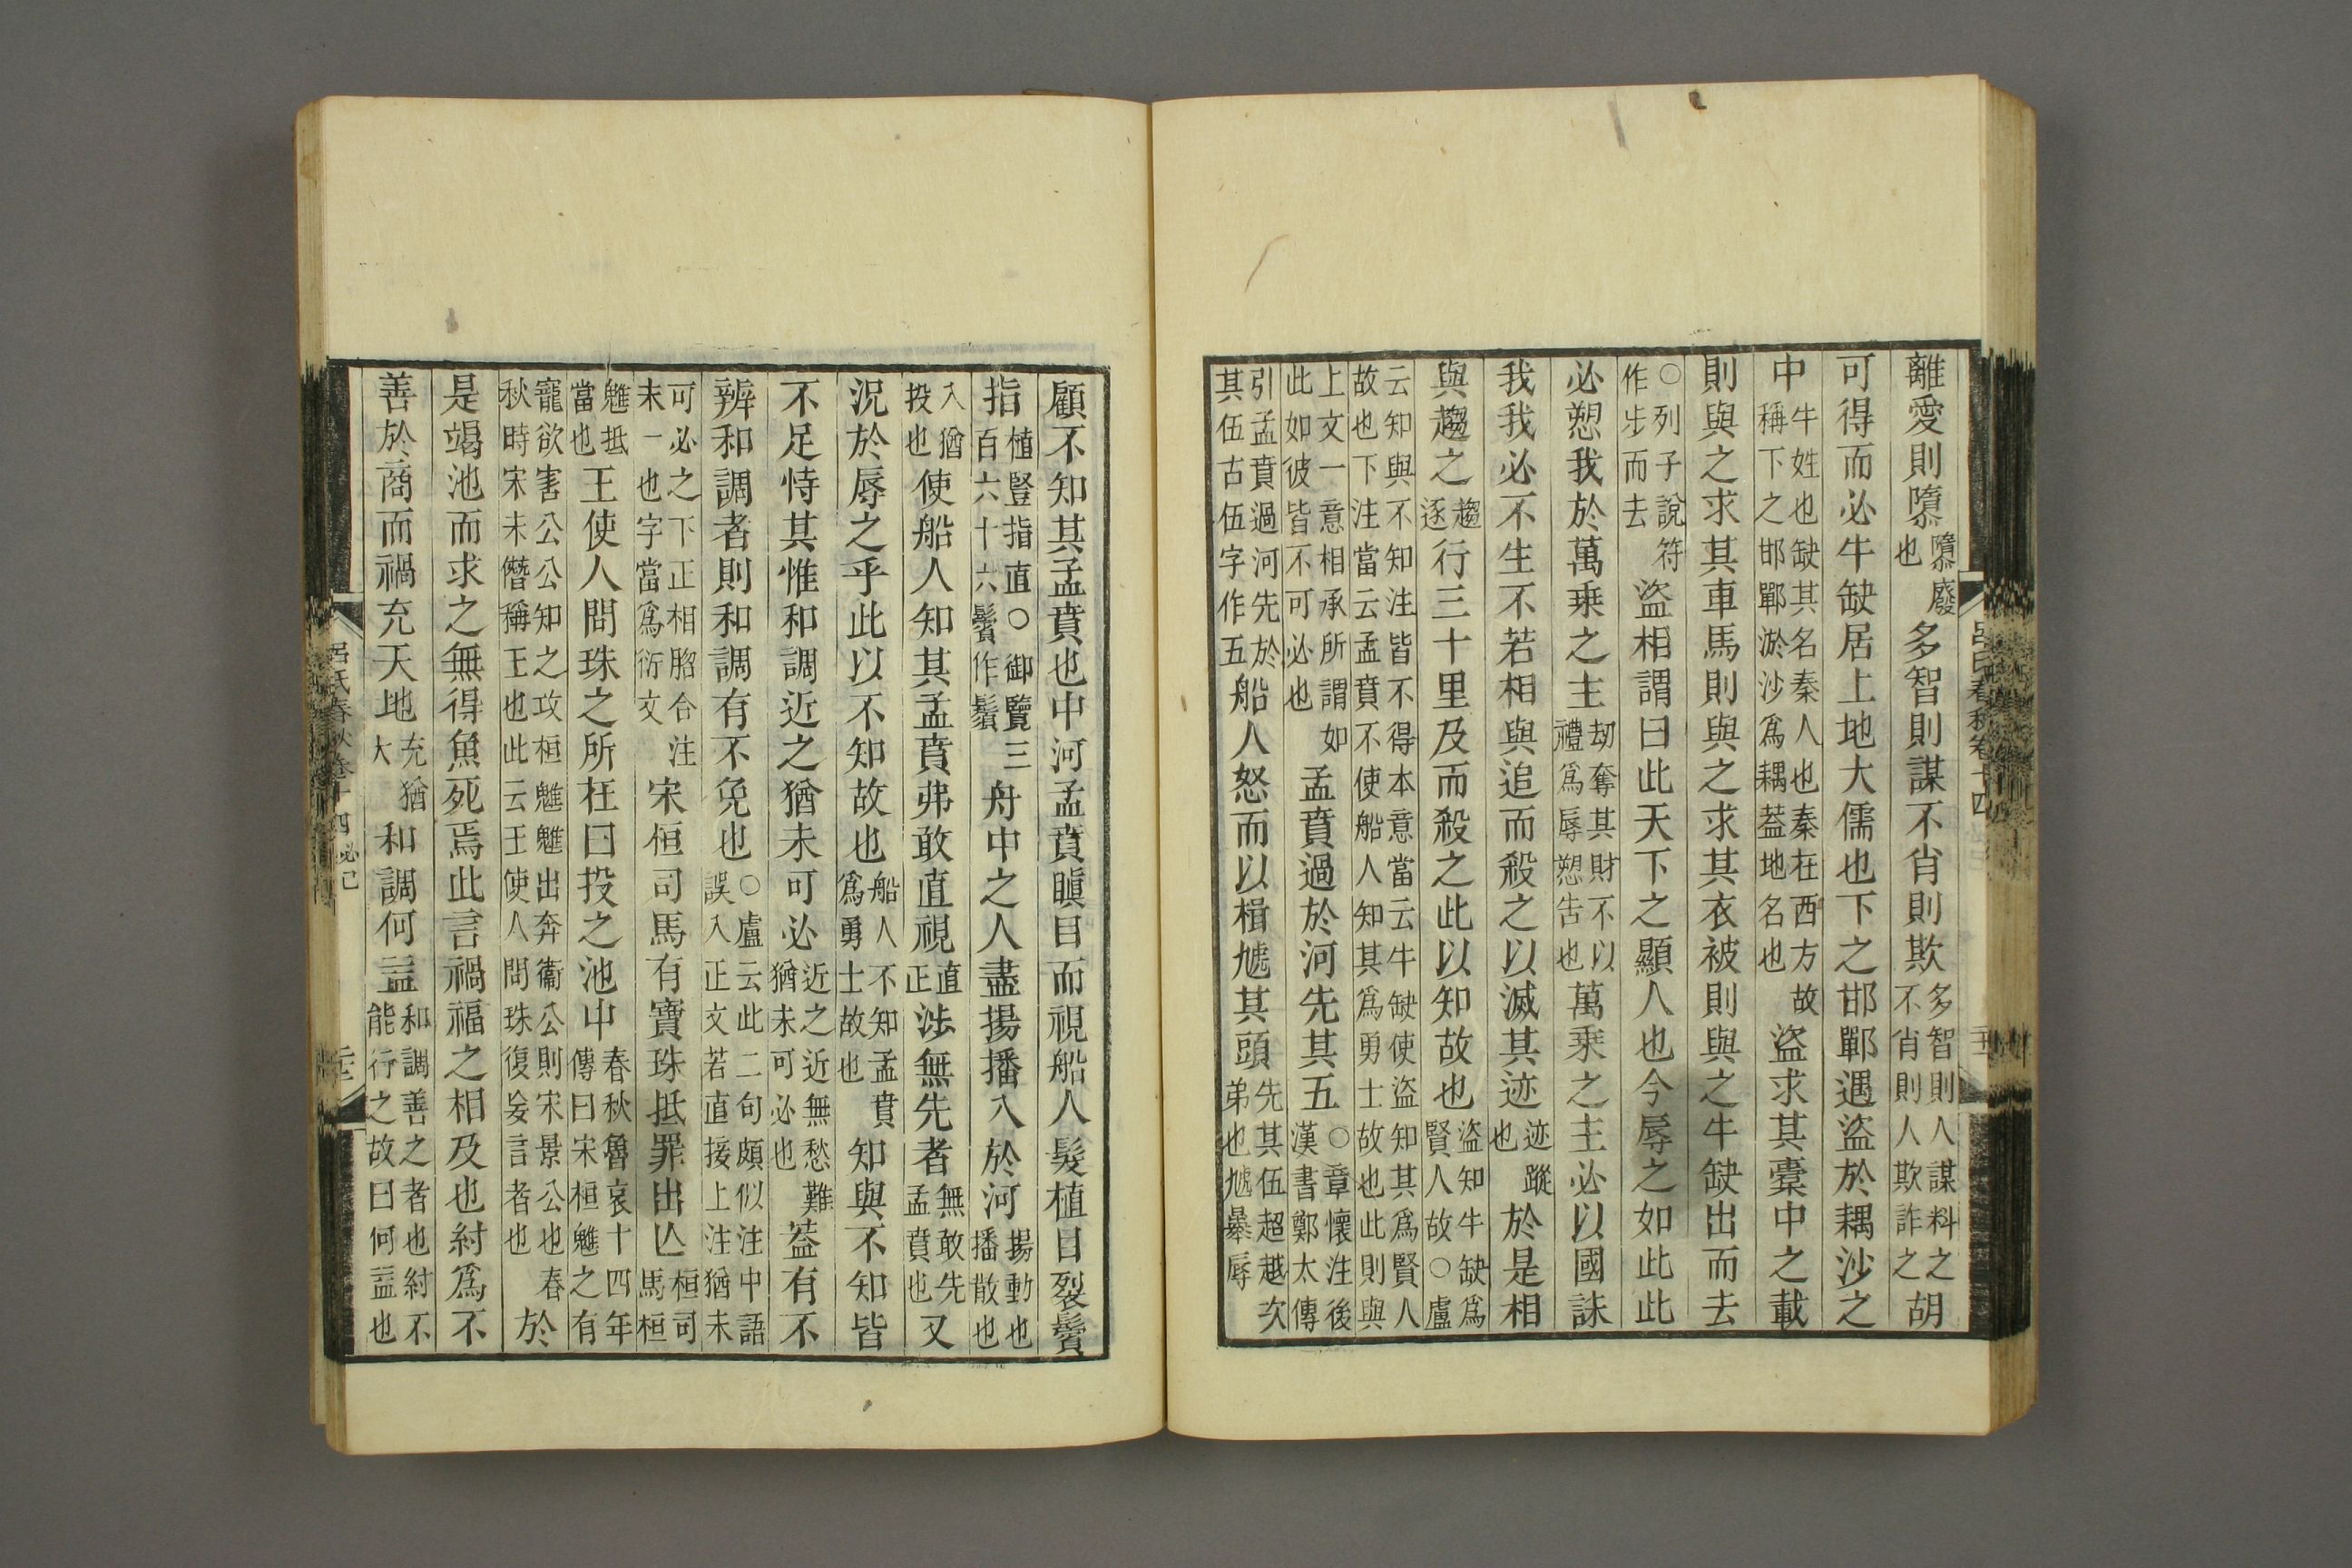 呂氏春秋卷十四
離愛則隳隳廢也多智則謀不肖則欺多智則人謀料之不肖則人欺詐之胡
可得而必牛缺居上地大儒也下之邯鄲遇盜於耦沙之
中牛姓也缺其名秦人也秦在西方故稱下之邯鄲淤沙爲耦蓋地名也盜求其橐中之載
則與之求其車馬則與之求其衣被則與之牛缺出而去
○列子說符作步而去盜相謂曰此天下之顯人也今辱之如此此
必愬我於萬乘之主劫奪其財不以禮爲辱愬告也萬乘之主必以國誅
我我必不生不若相與追而殺之以滅其迹迹蹤也於是相
與趨之趨逐行三十里及而殺之此以知故也盜知牛缺爲賢人故○盧
云知與不知注皆不得本意當云牛缺使盜知其爲賢人故也下注當云孟賁不使船人知其爲勇士故也此則與
上文一意相承所謂如此如彼皆不可必也孟賁過於河先其五○章懷注後漢書鄭太傳
引孟賁過河先於其伍古伍字作五船人怒而以楫虓其頭先其伍超越次弟也虓暴辱
顧不知其孟賁也中河孟賁瞋目而視船人髮植目裂鬢
指植豎指直○御覽三百六十六鬢作鬚舟中之人盡揚播入於河揚動也播散也
入猶投也使船人知其孟賁弗敢直視直正涉無先者無敢先孟賁也又
況於辱之乎此以不知故也船人不知孟賁爲勇士故也知與不知皆
不足恃其惟和調近之猶未可必近之近無愁難猶未可必也蓋有不
辨和調者則和調有不免也○盧云此二句頗似注中語誤入正文若直接上注猶未
可必之下正相脗合注末一也字當爲衍文宋桓司馬有寶珠抵罪出亾桓司馬桓
魋抵當也王使人問珠之所在曰投之池中春秋魯哀十四年傳曰宋桓魋之有
寵欲害公公知之攻桓魋魋出奔衞公則宋景公也春秋時宋未僭稱王也此云王使人問珠復妄言者也於
是竭池而求之無得魚死焉此言禍福之相及也紂爲不
善於商而禍充天地充猶大和調何益和調善之者也紂不能行之故曰何益也
呂氏春秋卷十四 必己